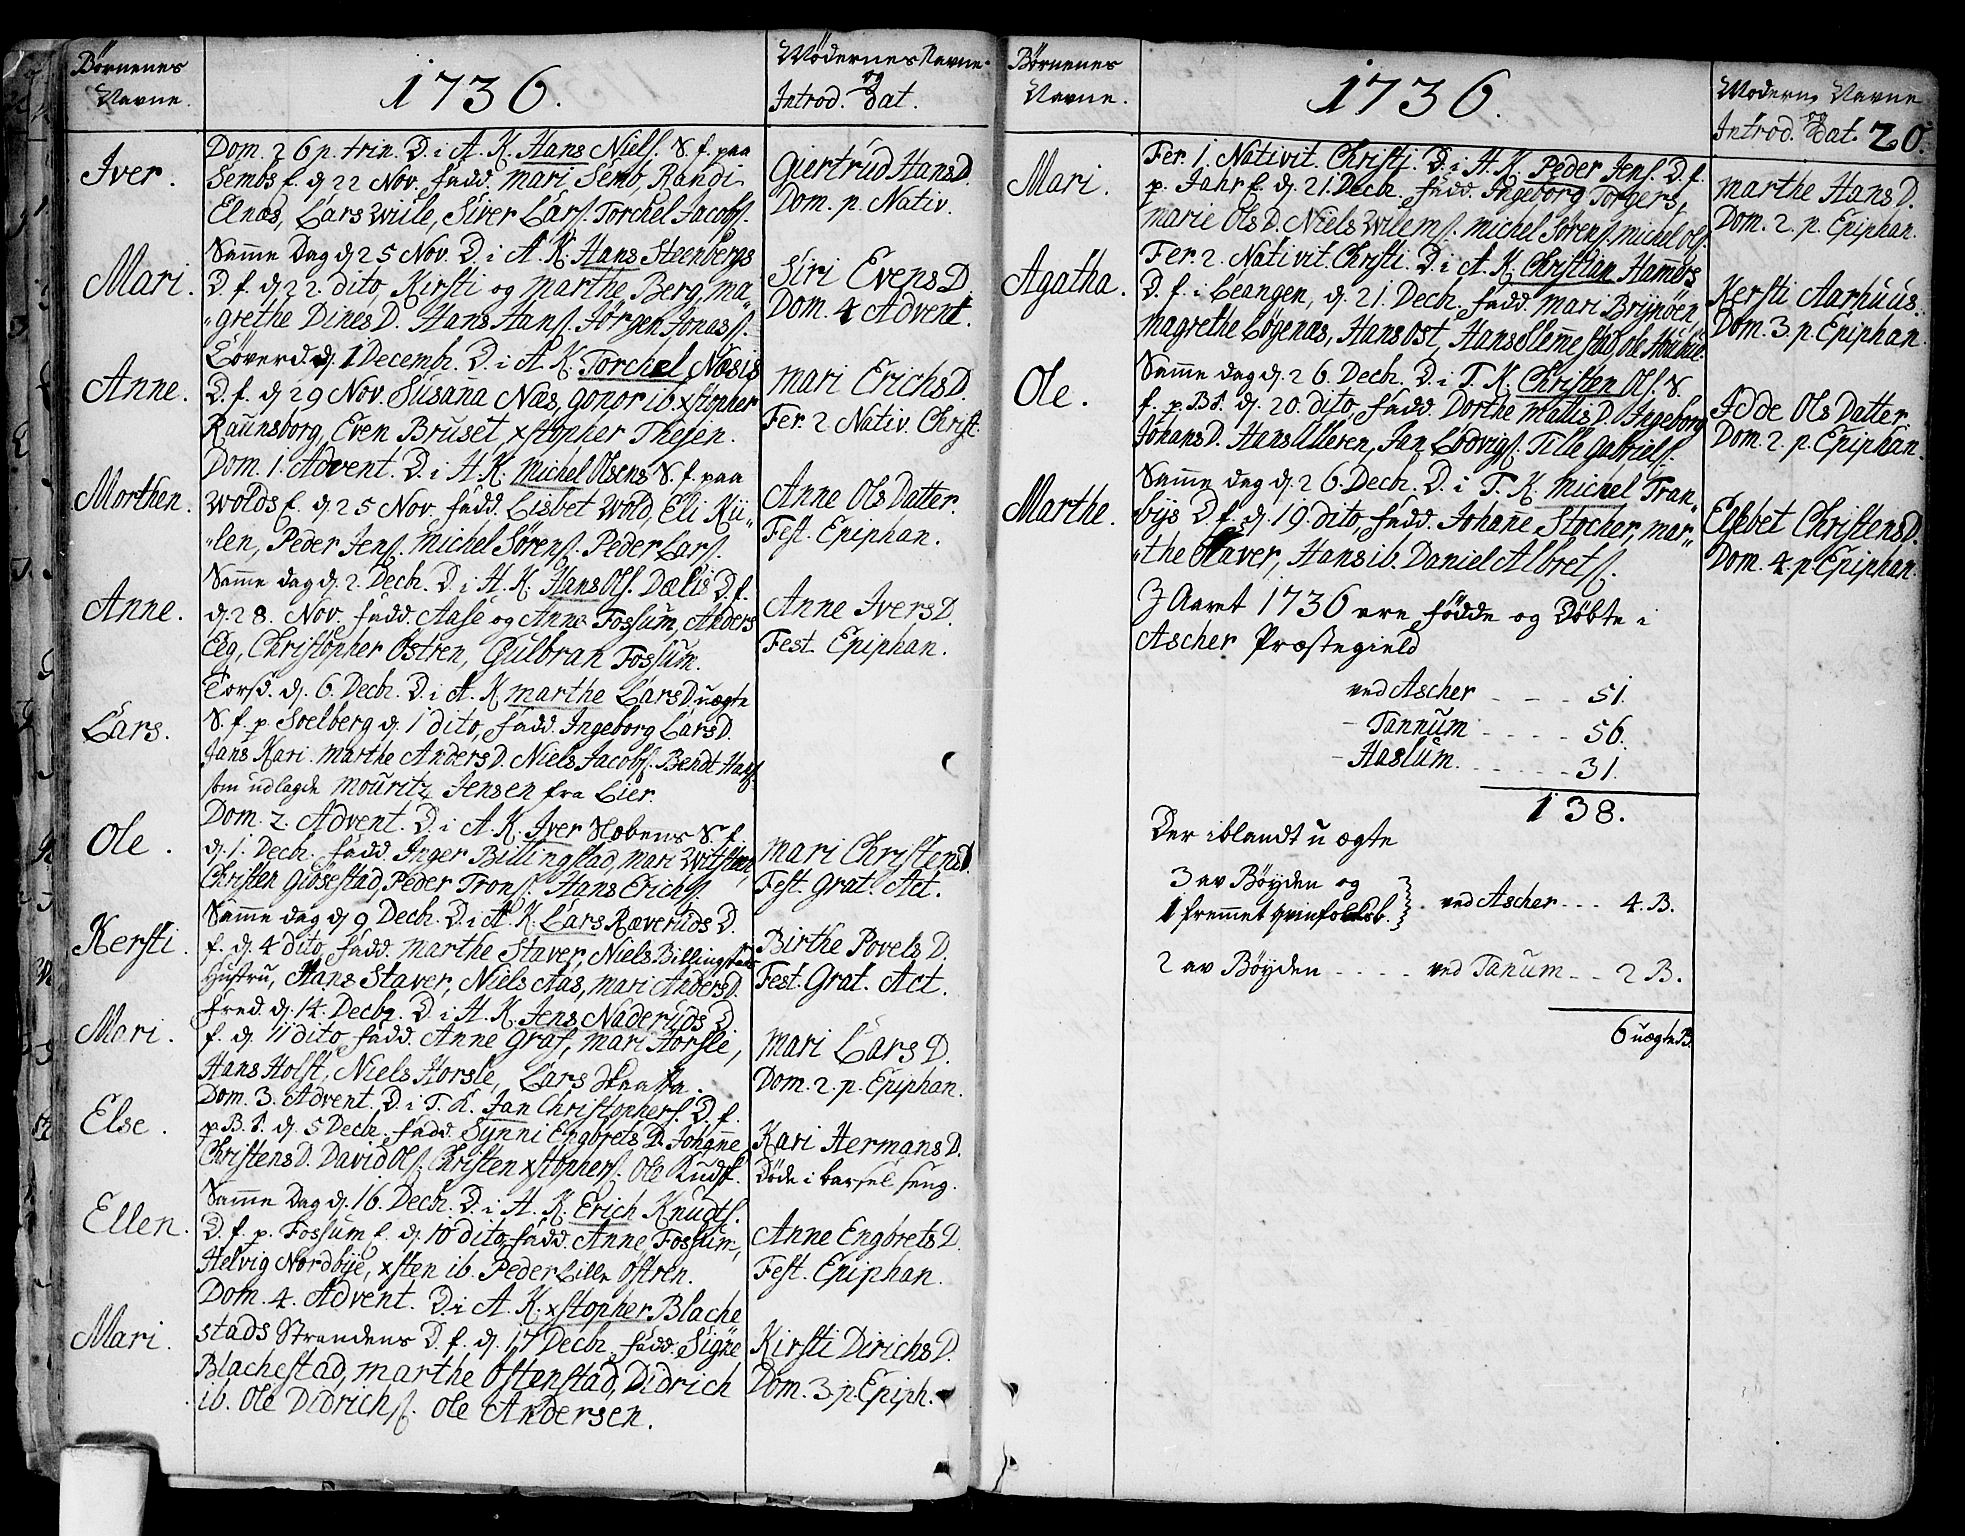 Børnenes
Navne.
1736.
Mødernes Navne
og
Introd. Dat.
Iver.
Dom. 26 p. trin. D. i A. K. Hans Niels. S. f. paa
Sembs E. d. 22 Nov. fadd. Mari Semb, Randi
Elnæs, Lars Wiile, Siver Lars. Torchel Jacobs.
Giertrud Hans D.
Dom. p. Nativ.
Mari.
Samme Dag d. 25 Nov. D. i A. K. Hans Steenbergs
D. f. d. 22. dito, Kirsti og Marthe Berg, Ma-
grethe Dines D. Hans Hans. Jörgen Jonass.
Siri Evens D.
Dom. 4 Advent.
Anne.
Löverd. d. 1 Decembr. D. i A. K. Torchel Næsis
D. f. d. 29 Nov. Susana Næs, Gonor ib. xstopher
Raunsborg, Even Bruset, xstopher Thesen.
Mari Erichs D.
Fer. 2 Nativ. Christ.
Morthen.
Dom. 1. Advent. D. i A. K. Michel Olsens S. f. paa
Wolds E. d. 25 Nov. fadd. Lisbet Wold, Eli Kü-
len, Peder Jens. Michel Sörens. Peder Lars.
Anne Ols Datter.
Fest. Epiphan.
Anne.
Samme dag d. 2. Decbr. D. i A. K. Hans Ols. Dælis D. f.
d. 28. Nov. fadd. Aase og Anne Fossum, Anders
Eeg, Christopher Östren, Gulbran Fossum.
Anne Ivers D.
Fest. Epiphan.
Lars.
Torsd. d. 6. Decbr. D. i A. K. Marthe Lars D. uægte
S. f. p. Soelberg d. 1 dito, fadd. Ingeborg Lars D.
Jans Kari. Marthe Anders D. Niels Jacobs. Bendt Hans.
som udlagde Mouritz Jensen fra Lier.
Ole.
Dom. 2. Advent. D. i A. K. Iver Næbens S. f.
d. 1. Decbr. fadd. Inger Billingstad, Mari
Christen Giösestad, Peder Trons. Hans Erichs.
Mari Christens D.
Fest. Grat. Act.
Kersti.
Samme dag d. 9 Decbr. D. i A. K. Lars Ræveruds D.
f. d. 4 dito, fadd. Marthe Staver, Niels Billingstads
Hustru, Hans Staver, Niels Aas, Mari Anders D.
Birthe Povels D.
Fest. Grat. Act.
Mari.
Fred. d. 14. Decbr. D. i A. K. Jens Naderuds D.
f. d. 11 dito, fadd. Anne Graf, Mari Horsle,
Hans Holst, Niels Horsle, Lars
Mari Lars D.
Dom. 2. p. Epiphan.
Else.
Dom. 3. Advent. D. i T. K. Jan Christophers. D. f.
p. B. S. d. 5 Decbr. fadd. Synni Engbrets D. Johanne
Christens D. David Ols. Christen xstophers. Ole Knuds.
Kari Hermans D.
Døde i barsel seng.
Ellen.
Samme Dag d. 16. Decbr. D. i A. K. Erich Knudts.
D. f. p. Fossum E. d. 10 dito, fadd. Anne Fossum,
Helvig Nordbÿe, xsten ib. Peder Lille Östren.
Anne Engbrets D.
Fest. Epiphan.
Mari.
Dom. 4. Advent. D. i A. K. xstopher Blache
stads Strandens D. f. d. 17 Decbr. fadd. Signe
Blachestad, Marthe Östenstad, Didrich
ib. Ole Didrichs. Ole Andersen.
Kirsti Dirichs D.
Dom. 3. p. Epiph.
Børnenes
Navne.
1736.
Modernes Navne
og
Introd. Dat. 20.
Mari.
Fer. 1. Nativit. Christi. D. i A. K. Peder Jens. D. f.
p. Jahr E. d. 21. Decbr. fadd. Ingeborg Torgers,
Marie Ols D. Niels Wilems. Michel Sörens. Michel Ols.
Marthe Hans D.
Dom. 2. p. Epiphan.
Agatha.
Fer. 2. Nativit. Christi. D. i A. K. Christian Hammers
D. f. i Leangen, d. 21. Decbr. fadd. Mari Brijnöen
Magrethe Løgenæs, Hans Ost, Hans Slemmestad, Ole
Kersti Aarhuus.
Dom. 3. p. Epiphan.
Ole.
Samme dag d. 26. Decbr. D. i T. K. Christen Ols. S.
f. p. B. S. d. 20. dito, fadd. Dorthe Mattis D. Ingeborg
Johans D. Hans Ulleren, Jan Lodvigs. Tille Gabriels.
Idde Ols Datter
Dom. 2. p. Epiphan.
Marthe.
Samme dag d. 26. Decbr. D. i T. K. Michel Tran-
bijs D. f. d. 19. dito, fadd. Johanne Stocher, Mar-
the Staver, Hans ib. Daniel Albrets.
Elsebet Christens D.
Dom. 4. p. Epiphan.
I Aaret 1736 ere födde og Døbte i
Ascher Præstegield
ved Ascher - - - 51.
- Tannum - - - - 56.
- Haslum. - - - - 31.
138.
Der iblandt u ægte
3 av Böyden og
1 fremmet qvinfolckb. } ved Ascher - - - 4. B.
2 av Böyden - - - - ved Tanum - - 2 B.
6 uægte B.